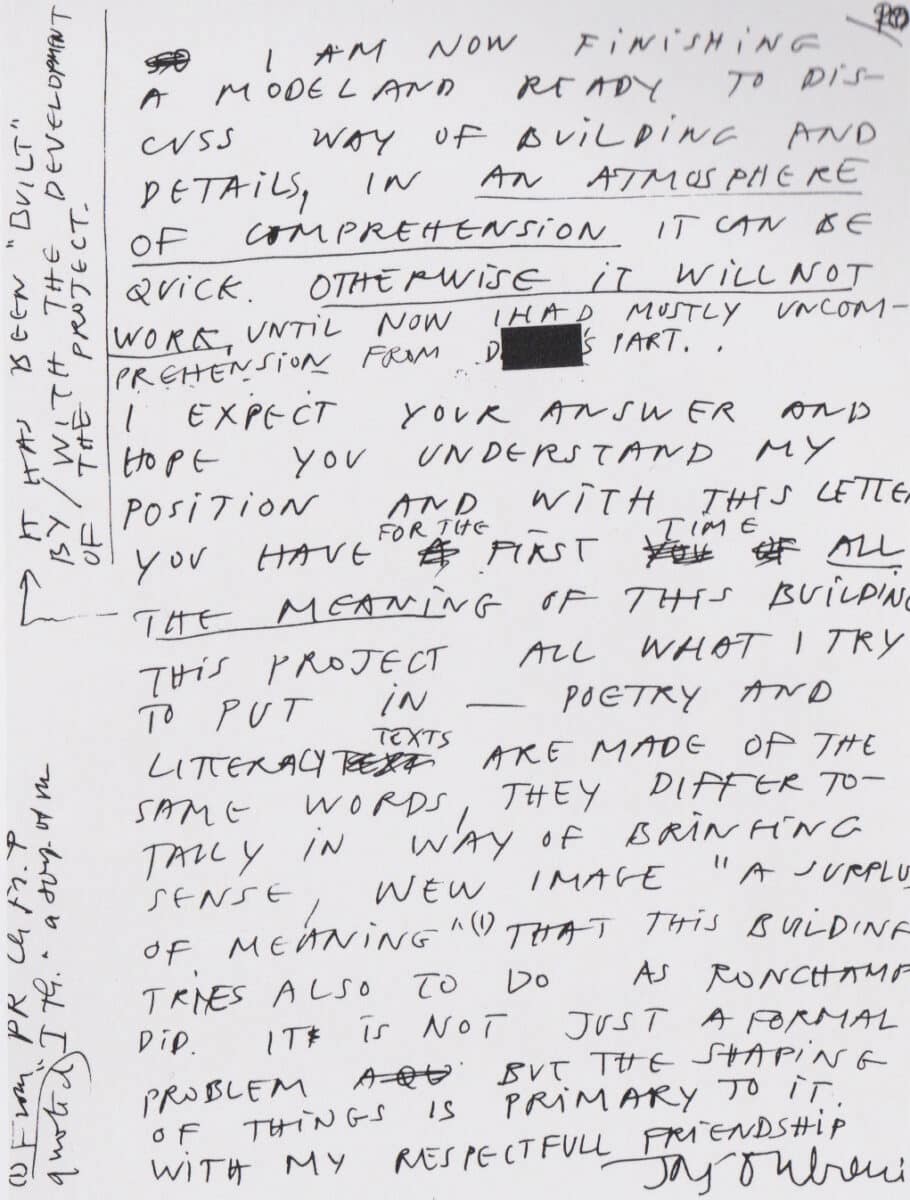 I AM NOW FINISHING
A MODEL AND READY TO DIS-
CUSS WAY OF BUILDING AND
DETAILS, IN AN ATMOSPHERE
OF COMPREHENSION IT CAN BE
QUICK. OTHERWISE IT WILL NOT
WORK, UNTIL NOW I HAD MOSTLY UNCOM-
PREHENSION FROM D 'S PART. .
I EXPECT YOUR ANSWER AND
HOPE YOU UNDERSTAND MY
POSITION AND WITH THIS LETTE
YOU HAVE FOR THE FIRST TIME ALL
THE MEANING OF THIS BUILDING
THIS PROJECT ALL WHAT I TRY
TO PUT IN — POETRY AND
LITTERACY TEXTS ARE MADE OF THE
SAME WORDS, THEY DIFFER TO-
TALLY IN WAY OF BRINGING
SENSE, NEW IMAGE "A SURPLUS
OF MEANING" (1) THAT THIS BUILDING
TRIES ALSO TO DO AS RONCHAMP
DID. IT IS NOT JUST A FORMAL
PROBLEM BUT THE SHAPING
OF THINGS IS PRIMARY TO IT.
WITH MY RESPECTFULL FRIENDSHIP
IT HAS BEEN "BUILT"
BY/WITH THE DEVELOPMENT
OF THE PROJECT.
(1) From PR
quoted